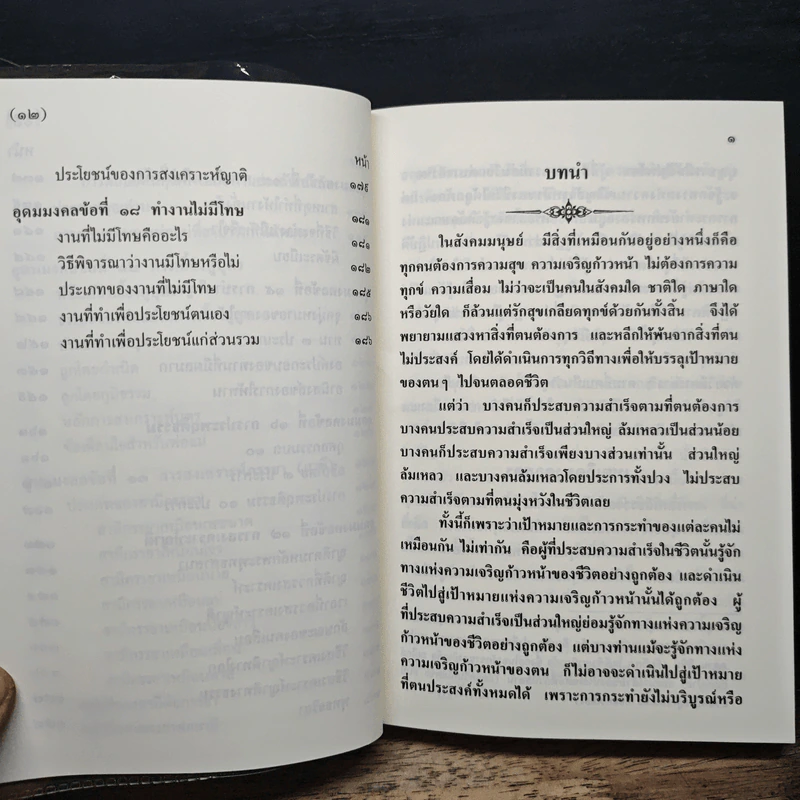 (๑๒)
หน้า
ประโยชน์ของการสงเคราะห์ญาติ ๑๗๙
อุดมมงคลข้อที่ ๑๘ ทำงานไม่มีโทษ ๑๘๑
งานที่ไม่มีโทษคืออะไร ๑๘๑
วิธีพิจารณาว่างานมีโทษหรือไม่ ๑๘๒
ประเภทของงานที่ไม่มีโทษ ๑๘๕
งานที่ทำเพื่อประโยชน์ตนเอง ๑๘๖
งานที่ทำเพื่อประโยชน์แก่ส่วนรวม ๑๘๖
๑
บทนำ
ในสังคมมนุษย์ มีสิ่งที่เหมือนกันอยู่อย่างหนึ่งก็คือ
ทุกคนต้องการความสุข ความเจริญก้าวหน้า ไม่ต้องการความ
ทุกข์ ความเสื่อม ไม่ว่าจะเป็นคนในสังคมใด ชาติใด ภาษาใด
หรือวัยใด ก็ล้วนแต่รักสุขเกลียดทุกข์ด้วยกันทั้งสิ้น จึงได้
พยายามแสวงหาสิ่งที่ตนต้องการ และหลีกให้พ้นจากสิ่งที่ตน
ไม่ประสงค์ โดยได้ดำเนินการทุกวิถีทางเพื่อให้บรรลุเป้าหมาย
ของตนๆ ไปจนตลอดชีวิต
แต่ว่า บางคนก็ประสบความสำเร็จตามที่ตนต้องการ
บางคนประสบความสำเร็จเป็นส่วนใหญ่ ล้มเหลวเป็นส่วนน้อย
บางคนก็ประสบความสำเร็จเพียงบางส่วนเท่านั้น ส่วนใหญ่
ล้มเหลว และบางคนล้มเหลวโดยประการทั้งปวง ไม่ประสบ
ความสำเร็จตามที่ตนมุ่งหวังในชีวิตเลย
ทั้งนี้ก็เพราะว่าเป้าหมายและการกระทำของแต่ละคนไม่
เหมือนกัน ไม่เท่ากัน คือผู้ที่ประสบความสำเร็จในชีวิตนั้นรู้จัก
ทางแห่งความเจริญก้าวหน้าของชีวิตอย่างถูกต้อง และดำเนิน
ชีวิตไปสู่เป้าหมายแห่งความเจริญก้าวหน้านั้นได้ถูกต้อง ผู้
ที่ประสบความสำเร็จเป็นส่วนใหญ่ย่อมรู้จักทางแห่งความเจริญ
ก้าวหน้าของชีวิตอย่างถูกต้อง แต่บางท่านแม้จะรู้จักทางแห่ง
ความเจริญก้าวหน้าของตน ก็ไม่อาจจะดำเนินไปสู่เป้าหมาย
ที่ตนประสงค์ทั้งหมดได้ เพราะการกระทำยังไม่บริบูรณ์หรือ